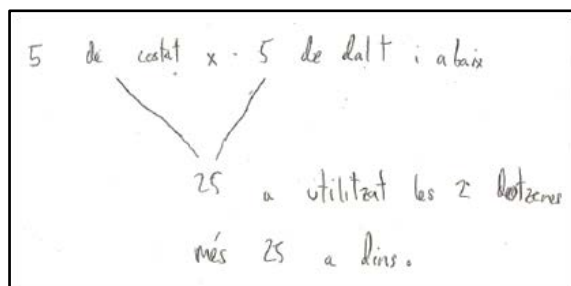 5 de costat x · 5 de dalt i abaix
25 a utilitzat les 2 dotzenes
més 25 a dins.